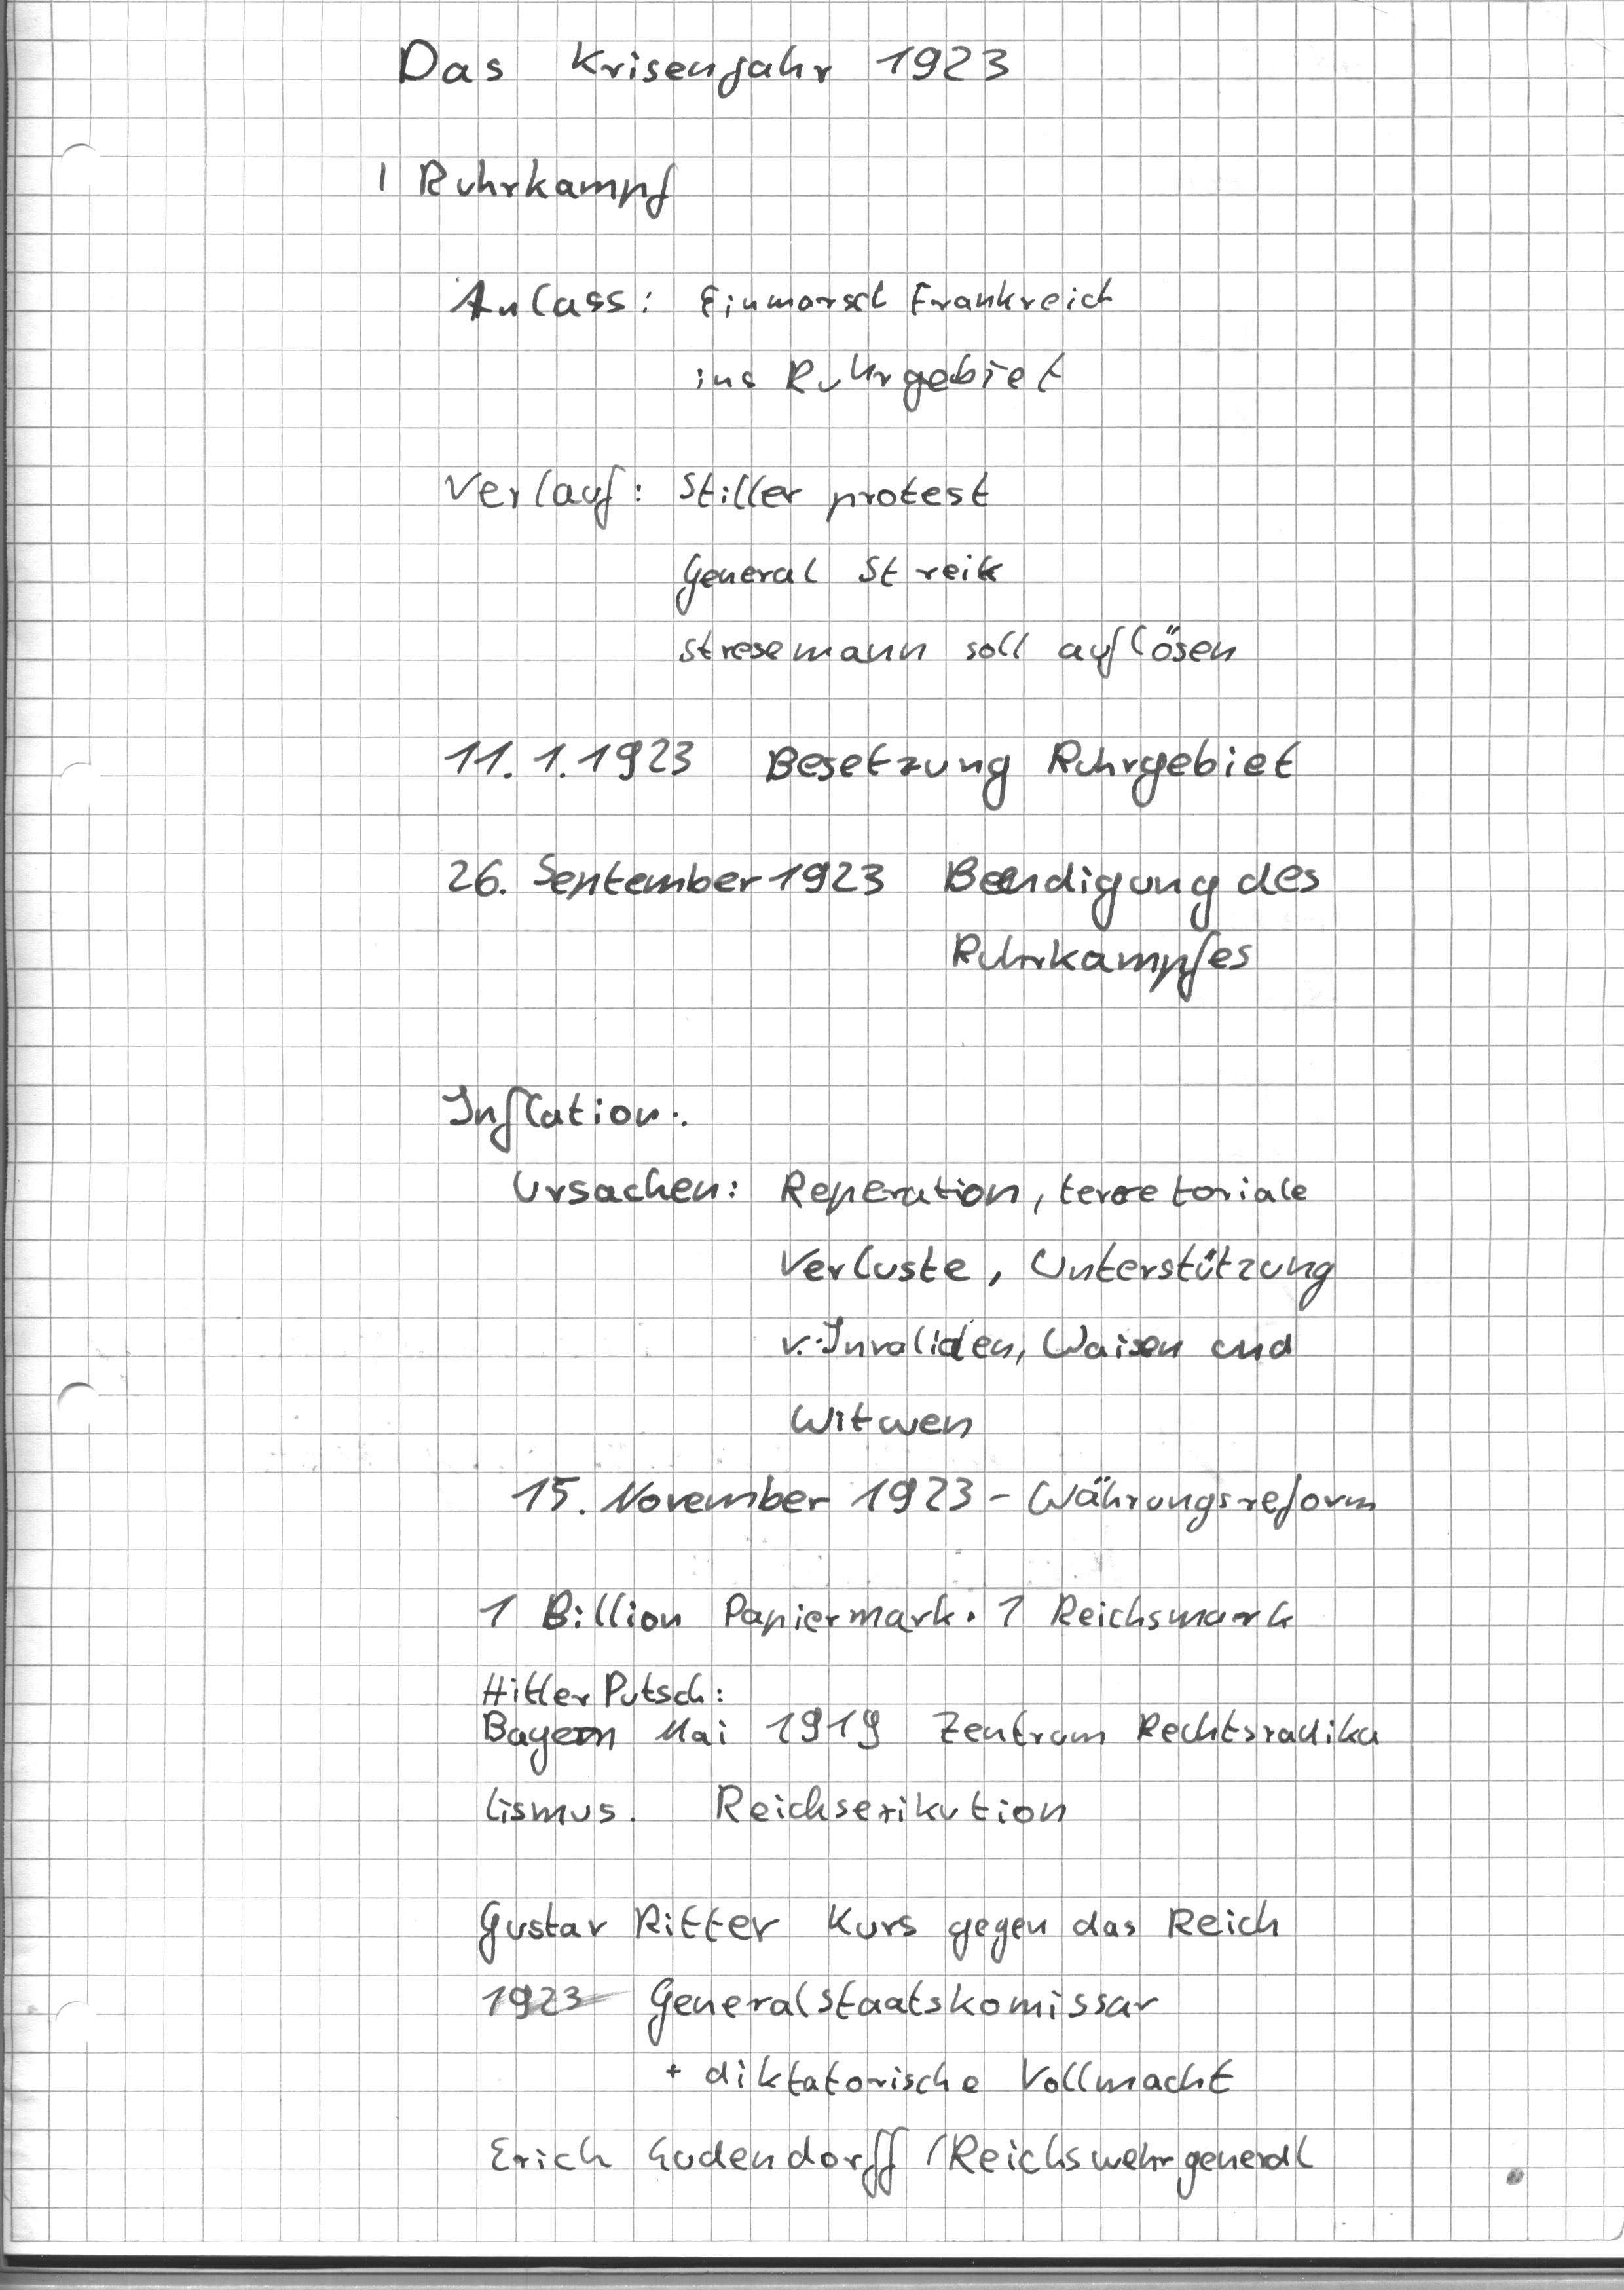 Das Krisenjahr 1923
1 Ruhrkampf
Anlass: Einmarsch Frankreich
ins Ruhrgebiet
Verlauf: Stiller protest
General Streik
Stresemann soll auflösen
11.1.1923 Besetzung Ruhrgebiet
26. September 1923 Beendigung des
Ruhrkampfes
Inflation:
Ursachen: Reperation, terretoriale
Verluste, Unterstützung
v. Invaliden, Waisen und
Witwen
15. November 1923 - Währungsreform
1 Billion Papiermark. 1 Reichsmark
Hitler Putsch:
Bayern Mai 1919 Zentrum Rechtsradika
lismus. Reichserikution
Gustav Ritter Kurs gegen das Reich
1923 Generalstaatskomissar
+ diktatorische Vollmacht
Erich Ludendorff / Reichswehrgeneral